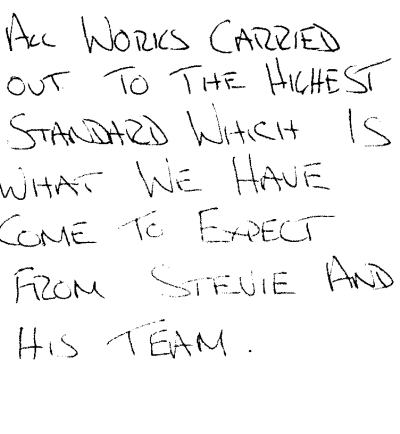 ALL WORKS CARRIED
OUT TO THE HIGHEST
STANDARD WHICH IS
WHAT WE HAVE
COME TO EXPECT
FROM STEVIE AND
HIS TEAM.